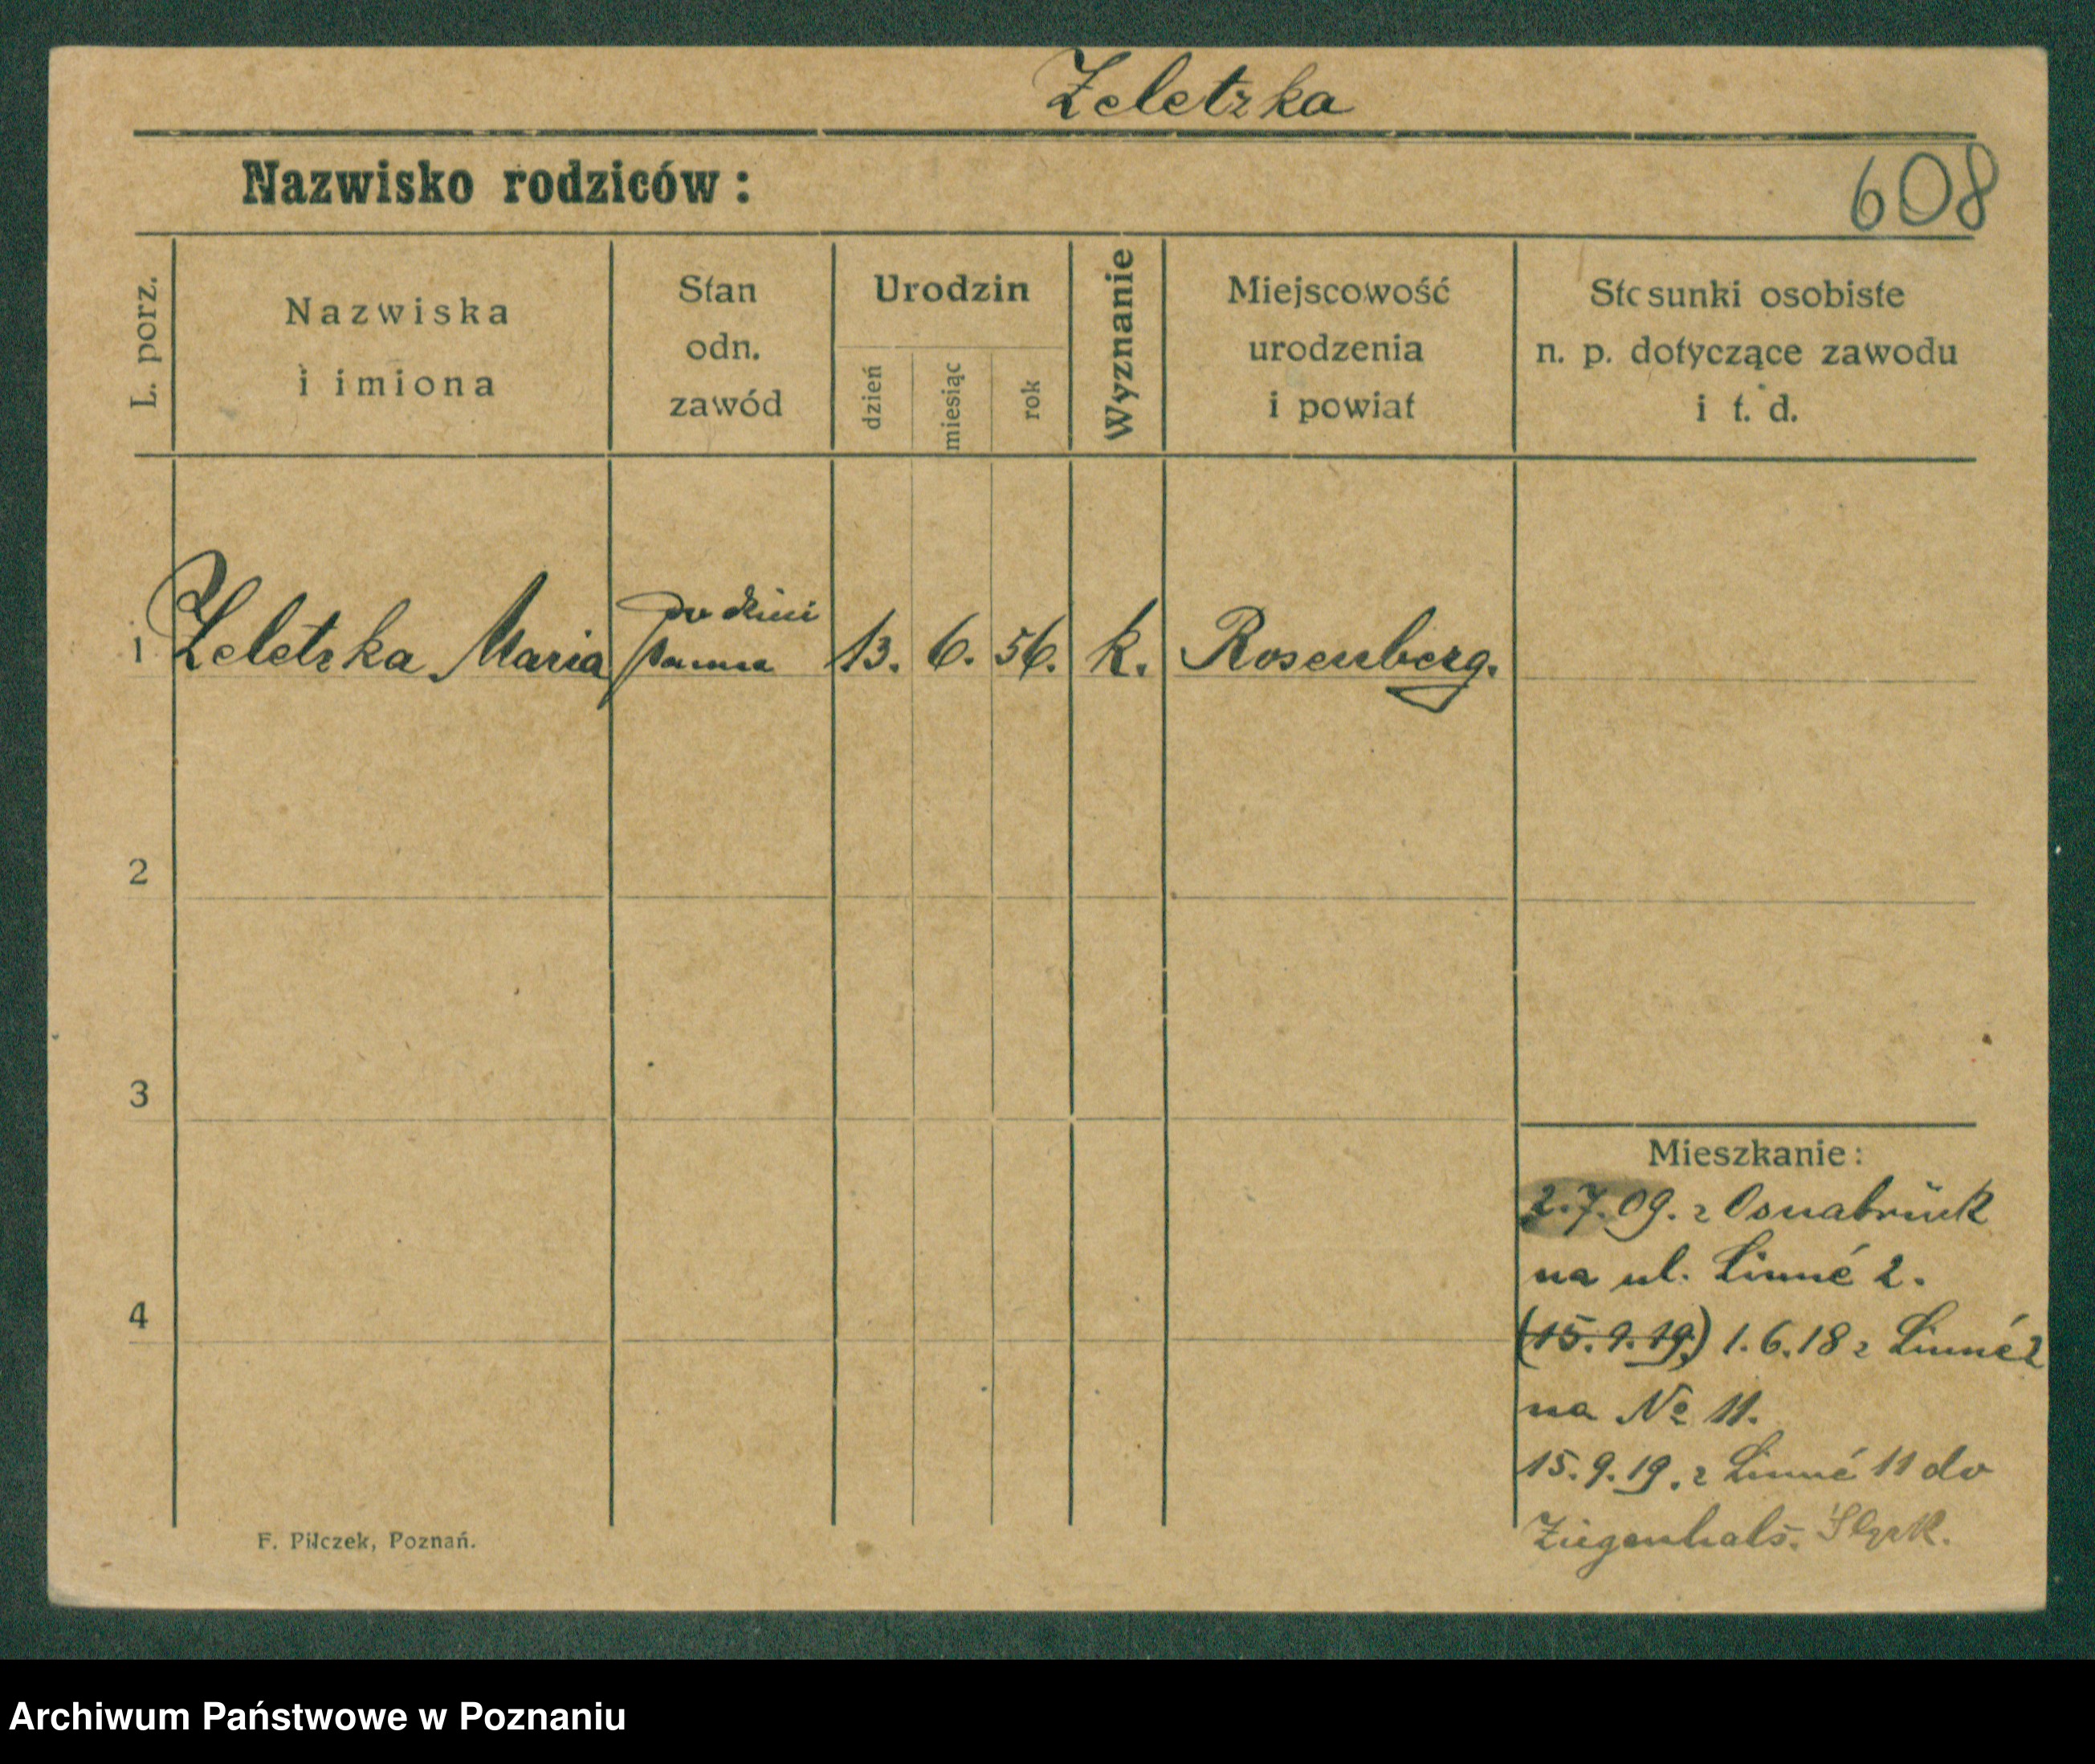 Zeletzka
Nazwisko rodziców:
608
L. porz.
Nazwiska
i imiona
Stan
odn.
zawód
Urodzin
dzień
miesiąc
rok
Wyznanie
Miejscowość
urodzenia
i powiat
Stosunki osobiste
n. p. dotyczące zawodu
i t. d.
1 Zeletzka Maria panna 13. 6. 56. k. Rosenberg.
2
3
4
Mieszkanie:
2.7.09. z Osnabrück
na ul. Linné 2.
(15.9.19.) 1.6.18 z Linné 2
na № 11.
15.9.19. z Linné 11 do
Ziegenhals. Śląsk.
F. Pilczek, Poznań.
Archiwum Państwowe w Poznaniu